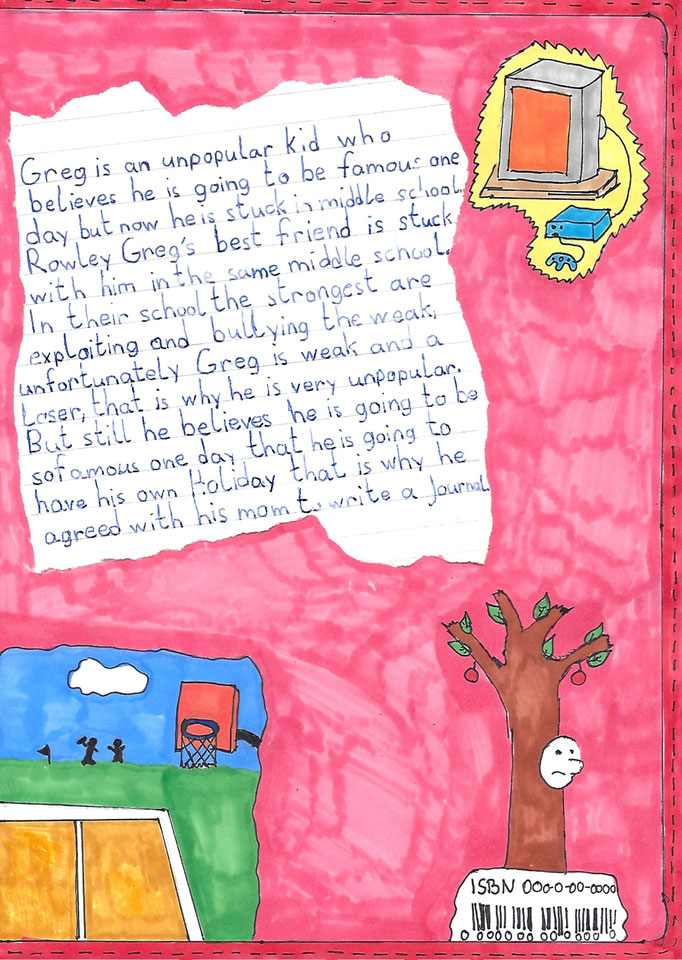 Greg is an unpopular kid who
believes he is going to be famous one
day but now he is stuck in middle school.
Rowley Greg's best friend is stuck
with him in the same middle school.
In their school the strongest are
exploiting and bullying the weak,
unfortunately Greg is weak and a
Loser, that is why he is very unpopular.
But still he believes he is going to be
so famous one day that he is going to
have his own Holiday that is why he
agreed with his mom to write a Journal.
ISBN 000-0-00-0000
0 00000 00 00 0 000 0